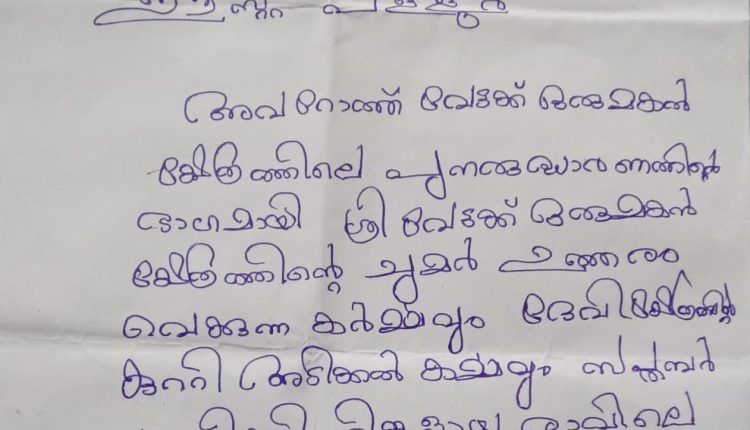 അവറോത്ത് വേട്ടക്ക് ഒരുമകൻ
ക്ഷേത്രത്തിലെ പുനരുദ്ധാരണത്തിന്റെ
ഭാഗമായി ശ്രീ വേട്ടക്ക് ഒരുമകൻ
ക്ഷേത്രത്തിന്റെ ചുമർ
വെക്കുന്ന കർമ്മവും ദേവിക്ഷേത്രത്തിന്റെ
കുറ്റി അടിക്കൽ കർമ്മവും
രാവിലെ